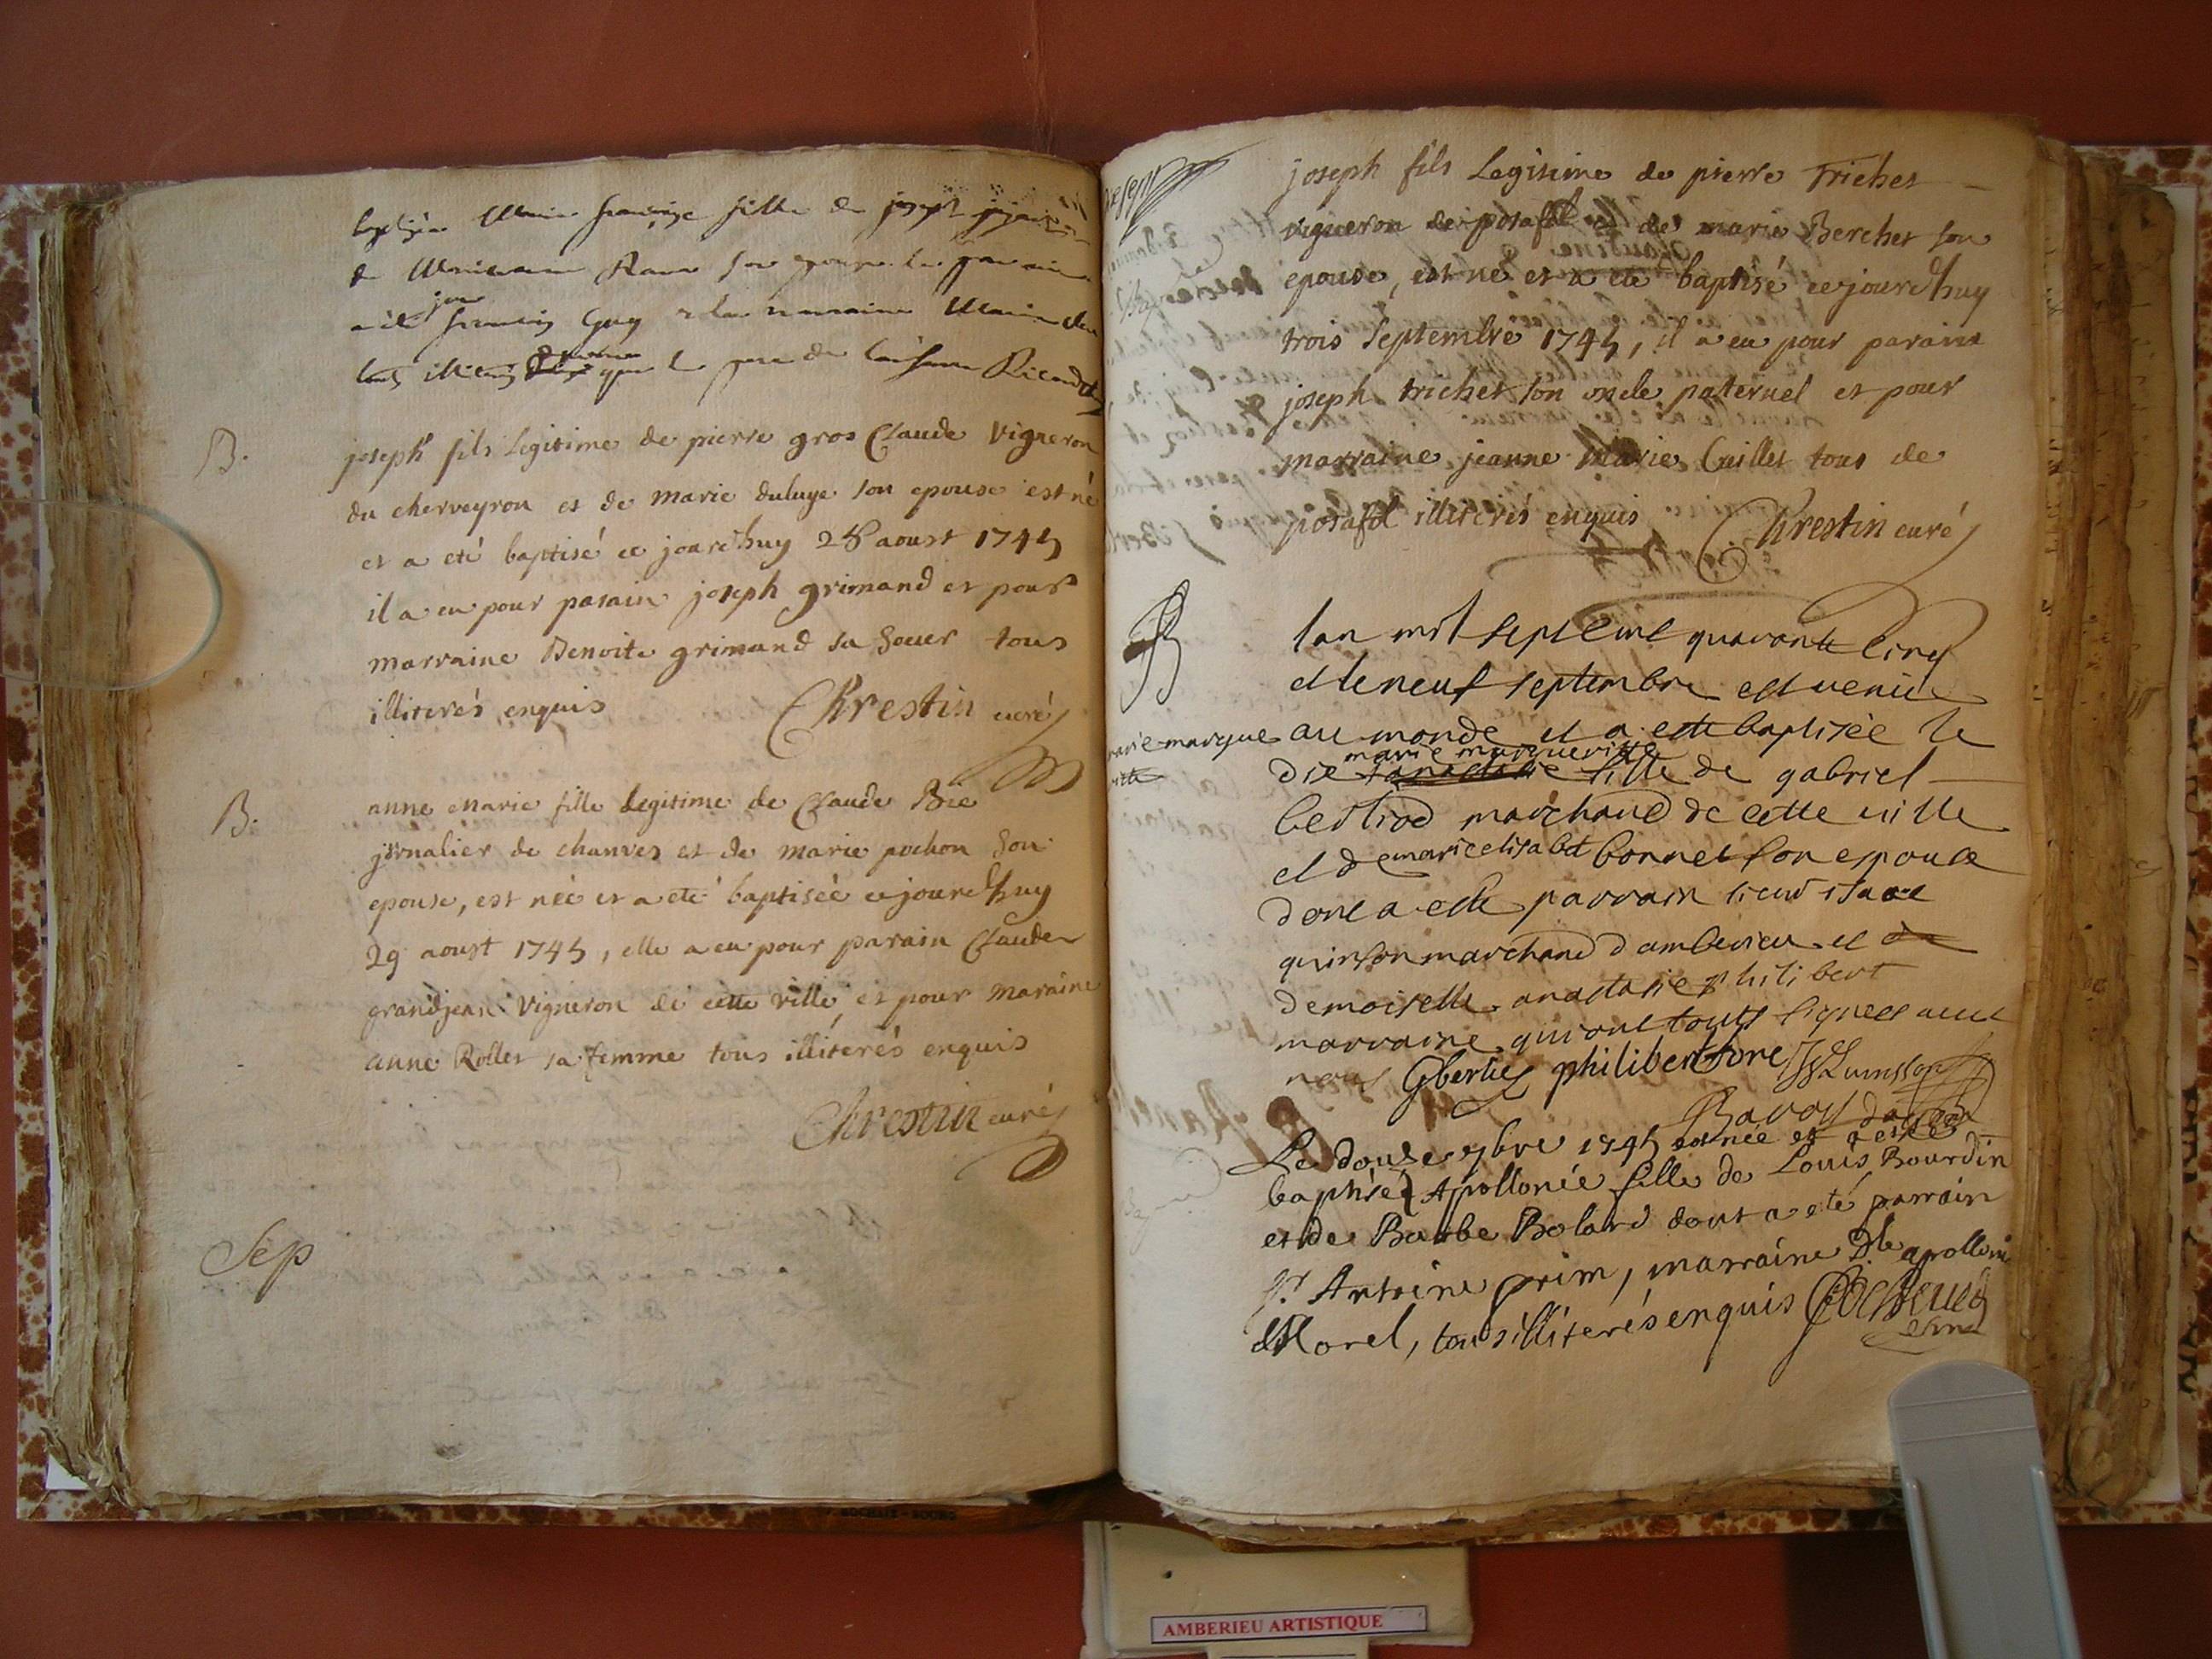 baptisée Marie françoise fille de joseph
de Son epouse le parain
a été francois Guy & la maraine Marie
touts illiterés que le pere de l'enfant Ricard
B.
joseph fils Legitime de pierre gros Claude Vigneron
du cherveyron et de marie duluye son epouse est né
et a eté baptisé ce jourdhuy 28 aoust 1745
il a eu pour parain joseph grimand et pour
marraine Benoite grimand sa Soeur tous
illiterés enquis Chrestin curé
B.
anne marie fille Legitime de Claude Bié
jornalier de chanves et de marie pochon Son
epouse, est née et a eté baptisée ce jourdhuy
29 aoust 1745, elle a eu pour parain Claude
grandjean Vigneron de cette ville, et pour maraine
anne Rollet sa femme tous illiterés enquis
Chrestin curé
Sep
joseph fils Legitime de pierre Trichet
vigneron de posafol et de marie Berchet son
epouse, est né et a eté baptisé ce jourdhuy
trois Septembre 1745, il a eu pour parain
joseph trichet son oncle paternel et pour
marraine jeanne Marie Cuillet tous de
posafol illiterés enquis Chrestin curé
B
lan mil sept cent quarante cinq
et le neuf septembre est venue
marie margue au monde et a esté baptisée le
ritte
marie margueritte
dix anastasie fille de gabriel
bertiod marchand de cette ville
et de marie elisabet bonnet son espouse
dont a esté parrain sieur isaac
quinson marchand damberieu et
demoiselle anastasie philibert
marraine qui ont touts signés avec
nous Gbertiod philibert fore
Le douze 7bre 1745 est née et a esté
baptisée Apollonie fille de Louis Bourdin
et de Barbe Bolard dont a eté parrain
Sr. Antoine prim, marraine Dlle apollonie
Morel, tous illiterés enquis
AMBERIEU ARTISTIQUE